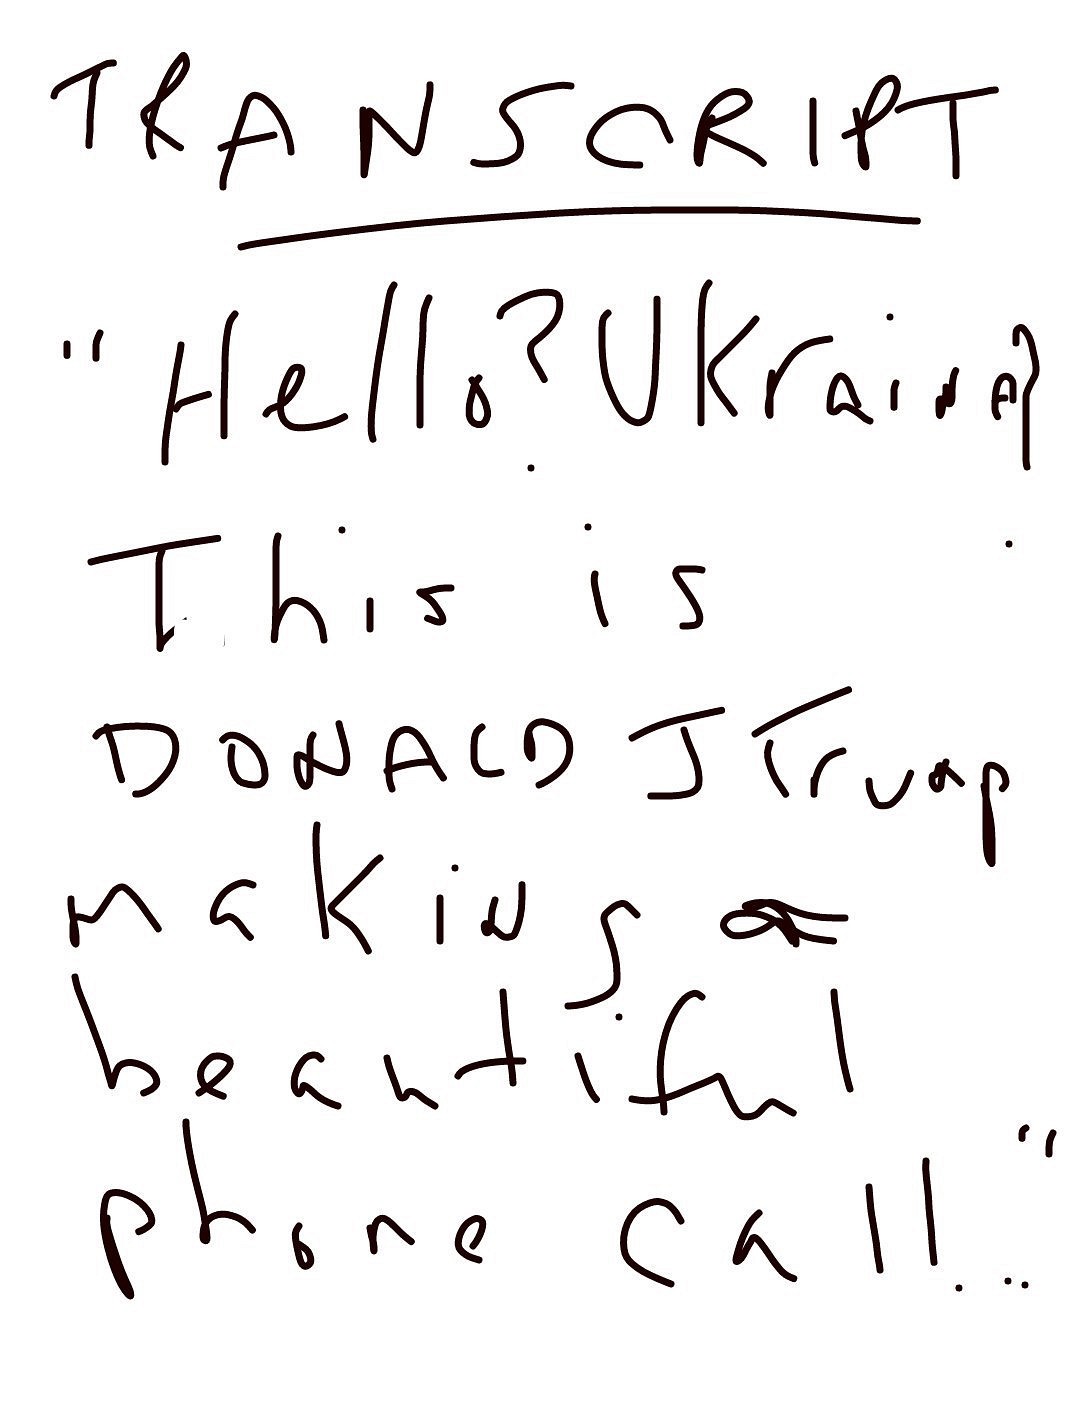 TRANSCRIPT
"Hello? Ukraine?
This is
DONALD J Trump
making a
beautiful
phone call..."